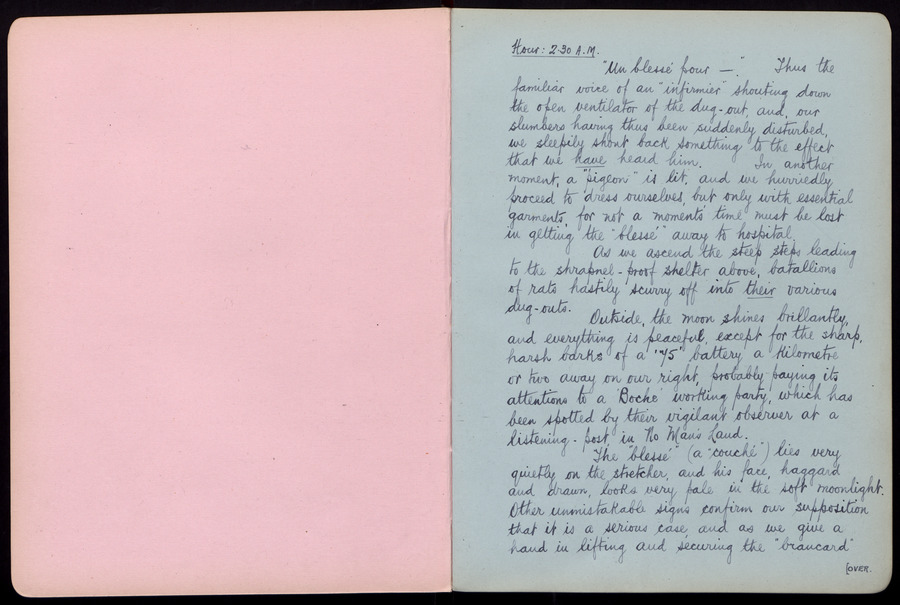 Hour: 2.30 A.M.
"Un blessé pour —". Thus the
familiar voice of an "infirmier" shouting down
the open ventilator of the dug-out, and, our
slumbers having thus been suddenly disturbed,
we sleepily shout back something to the effect
that we have heard him. In another
moment, a "pigeon" is lit, and we hurriedly
proceed to dress ourselves, but only with essential
garments, for not a moments' time must be lost
in getting the "blessé" away to hospital.
As we ascend the steep steps leading
to the shrapnel-proof shelter above, batallions
of rats hastily scurry off into their various
dug-outs.
Outside, the moon shines brillantly,
and everything is peaceful, except for the sharp,
harsh barks of a "75" battery a Kilometre
or two away on our right, probably paying its
attentions to a 'Boche' working party, which has
been spotted by their vigilant observer at a
listening-post, in No Man's Land.
The "blessé" (a "couché") lies very
quietly on the stretcher, and his face, haggard
and drawn, looks very pale in the soft moonlight.
Other unmistakable signs confirm our supposition
that it is a serious case, and as we give a
hand in lifting and securing the "brancard"
[OVER.